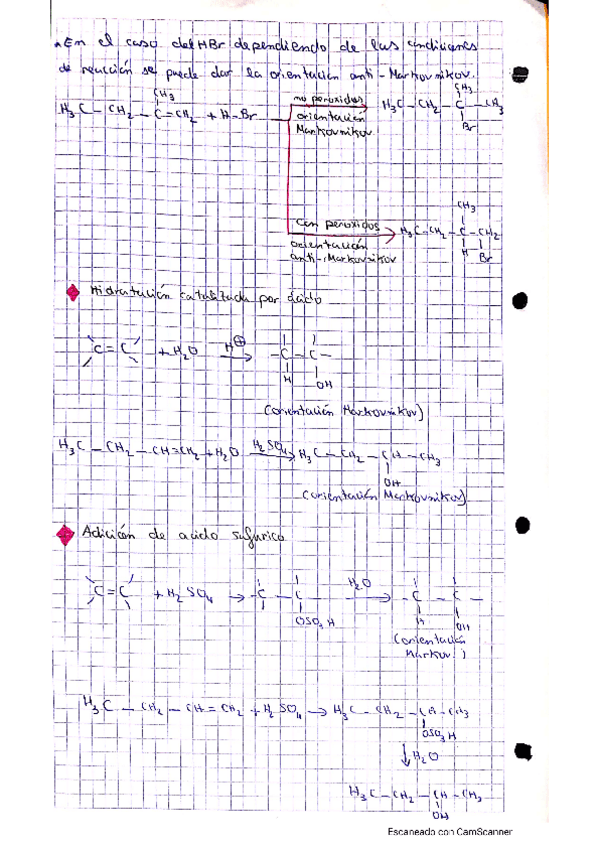 En el caso del HBr dependiendo de las condiciones
de reacción se puede dar la orientación anti-Markovnikov.
CH3
H3C-CH2-C=CH2 + H-Br
no peroxidos
orientación
Markovnikov
CH3
H3C-CH2-C-CH3
Br
Con peroxidos
orientación
anti-Markovnikov
CH3
H3C-CH2-C-CH2
H Br
Hidratación catalizada por ácido
C=C + H2O H⊕ → -C-C-
H OH
(orientación Markovnikov)
H3C-CH2-CH=CH2+H2O H2SO4 → H3C-CH2-CH-CH3
OH
(orientación Markovnikov)
Adición de acido sulfurico
C=C + H2SO4 → -C-C- H2O → -C-C-
OSO3H H OH
(orientación
Markov.)
H3C-CH2-CH=CH2+H2SO4 → H3C-CH2-CH-CH3
OSO3H
↓H2O
H3C-CH2-CH-CH3
OH
Escaneado con CamScanner